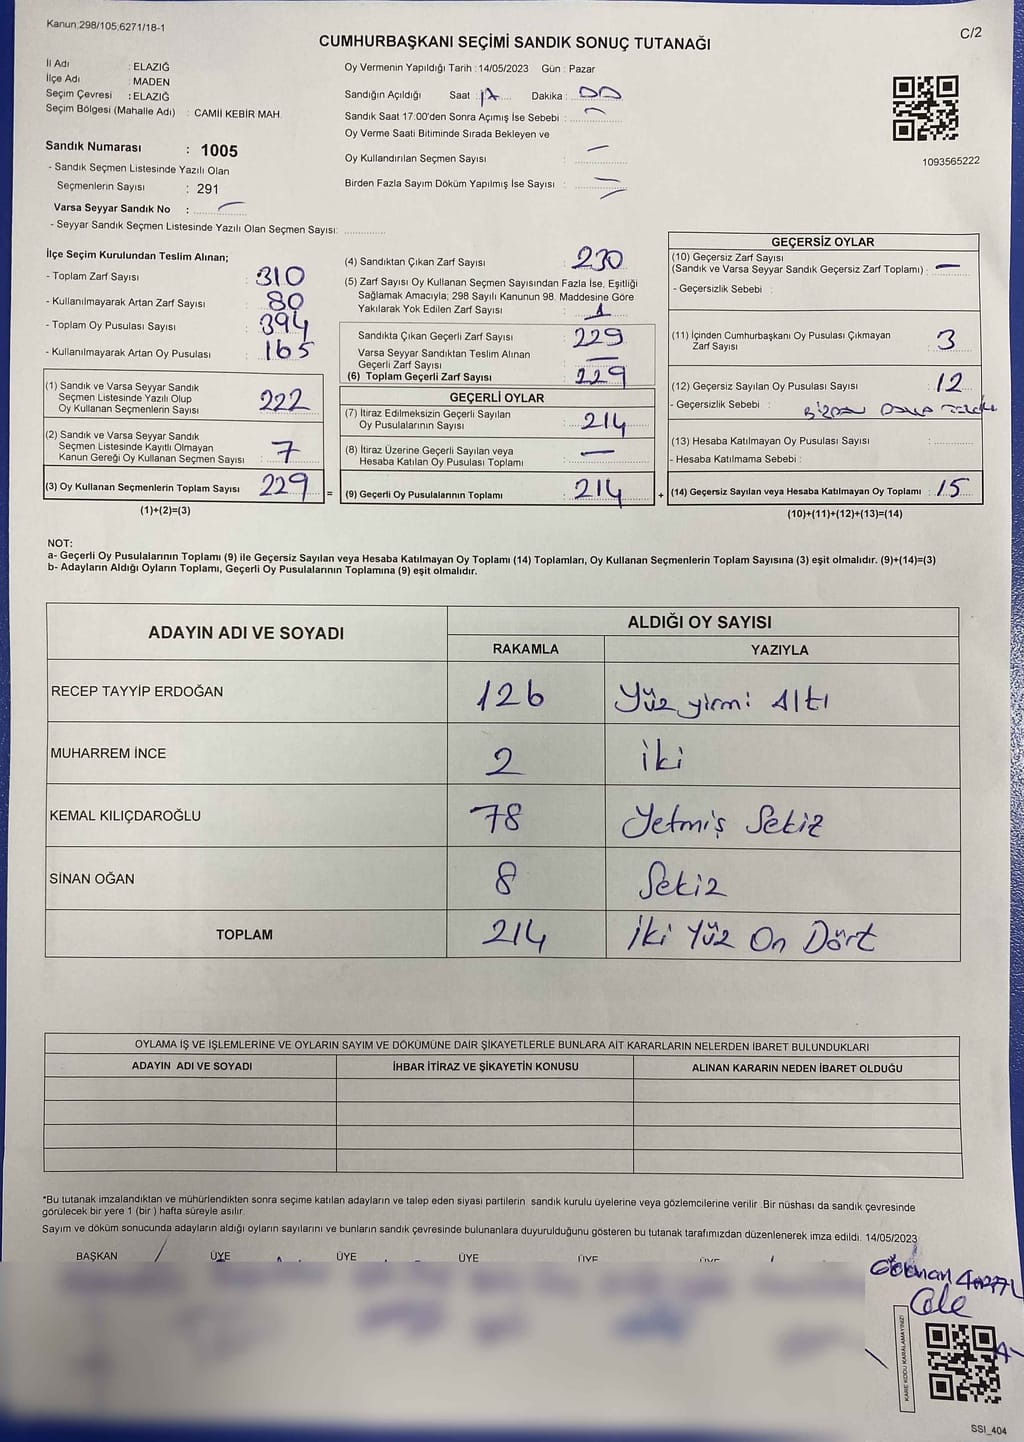 Kanun:298/105,6271/18-1
C/2
CUMHURBAŞKANI SEÇİMİ SANDIK SONUÇ TUTANAĞI
İl Adı : ELAZIĞ
İlçe Adı : MADEN
Seçim Çevresi : ELAZIĞ
Seçim Bölgesi (Mahalle Adı) : CAMİİ KEBİR MAH.
Sandık Numarası : 1005
- Sandık Seçmen Listesinde Yazılı Olan
Seçmenlerin Sayısı : 291
Varsa Seyyar Sandık No : —
- Seyyar Sandık Seçmen Listesinde Yazılı Olan Seçmen Sayısı:
Oy Vermenin Yapıldığı Tarih : 14/05/2023 Gün : Pazar
Sandığın Açıldığı Saat : 17 Dakika : 00
Sandık Saat 17:00'den Sonra Açımış İse Sebebi : —
Oy Verme Saati Bitiminde Sırada Bekleyen ve
Oy Kullandırılan Seçmen Sayısı : —
Birden Fazla Sayım Döküm Yapılmış İse Sayısı : —
1093565222
İlçe Seçim Kurulundan Teslim Alınan;
- Toplam Zarf Sayısı : 310
- Kullanılmayarak Artan Zarf Sayısı : 80
- Toplam Oy Pusulası Sayısı : 394
- Kullanılmayarak Artan Oy Pusulası : 165
(1) Sandık ve Varsa Seyyar Sandık
Seçmen Listesinde Yazılı Olup
Oy Kullanan Seçmenlerin Sayısı : 222
(2) Sandık ve Varsa Seyyar Sandık
Seçmen Listesinde Kayıtlı Olmayan
Kanun Gereği Oy Kullanan Seçmen Sayısı : 7
(3) Oy Kullanan Seçmenlerin Toplam Sayısı : 229 =
(1)+(2)=(3)
(4) Sandıktan Çıkan Zarf Sayısı : 230
(5) Zarf Sayısı Oy Kullanan Seçmen Sayısından Fazla İse, Eşitliği
Sağlamak Amacıyla; 298 Sayılı Kanunun 98. Maddesine Göre
Yakılarak Yok Edilen Zarf Sayısı : 1
Sandıkta Çıkan Geçerli Zarf Sayısı : 229
Varsa Seyyar Sandıktan Teslim Alınan
Geçerli Zarf Sayısı : —
(6) Toplam Geçerli Zarf Sayısı : 229
GEÇERLİ OYLAR
(7) İtiraz Edilmeksizin Geçerli Sayılan
Oy Pusulalarının Sayısı : 214
(8) İtiraz Üzerine Geçerli Sayılan veya
Hesaba Katılan Oy Pusulası Toplamı : —
(9) Geçerli Oy Pusulalarının Toplamı : 214 +
GEÇERSİZ OYLAR
(10) Geçersiz Zarf Sayısı
(Sandık ve Varsa Seyyar Sandık Geçersiz Zarf Toplamı) : —
- Geçersizlik Sebebi :
(11) İçinden Cumhurbaşkanı Oy Pusulası Çıkmayan
Zarf Sayısı : 3
(12) Geçersiz Sayılan Oy Pusulası Sayısı : 12
- Geçersizlik Sebebi : Birden
(13) Hesaba Katılmayan Oy Pusulası Sayısı :
- Hesaba Katılmama Sebebi :
(14) Geçersiz Sayılan veya Hesaba Katılmayan Oy Toplamı : 15
(10)+(11)+(12)+(13)=(14)
NOT:
a- Geçerli Oy Pusulalarının Toplamı (9) ile Geçersiz Sayılan veya Hesaba Katılmayan Oy Toplamı (14) Toplamları, Oy Kullanan Seçmenlerin Toplam Sayısına (3) eşit olmalıdır. (9)+(14)=(3)
b- Adayların Aldığı Oyların Toplamı, Geçerli Oy Pusulalarının Toplamına (9) eşit olmalıdır.
ADAYIN ADI VE SOYADI
ALDIĞI OY SAYISI
RAKAMLA YAZIYLA
RECEP TAYYİP ERDOĞAN 126 Yüz yirmi Altı
MUHARREM İNCE 2 İki
KEMAL KILIÇDAROĞLU 78 Yetmiş Sekiz
SİNAN OĞAN 8 Sekiz
TOPLAM 214 İki Yüz On Dört
OYLAMA İŞ VE İŞLEMLERİNE VE OYLARIN SAYIM VE DÖKÜMÜNE DAİR ŞİKAYETLERLE BUNLARA AİT KARARLARIN NELERDEN İBARET BULUNDUKLARI
ADAYIN ADI VE SOYADI İHBAR İTİRAZ VE ŞİKAYETİN KONUSU ALINAN KARARIN NEDEN İBARET OLDUĞU
*Bu tutanak imzalandıktan ve mühürlendikten sonra seçime katılan adayların ve talep eden siyasi partilerin sandık kurulu üyelerine veya gözlemcilerine verilir .Bir nüshası da sandık çevresinde
görülecek bir yere 1 (bir ) hafta süreyle asılır.
Sayım ve döküm sonucunda adayların aldığı oyların sayılarını ve bunların sandık çevresinde bulunanlara duyurulduğunu gösteren bu tutanak tarafımızdan düzenlenerek imza edildi. 14/05/2023
BAŞKAN ÜYE ÜYE ÜYE ÜYE ÜYE
KARE KODU KARALAMAYINIZ!
SSI_404